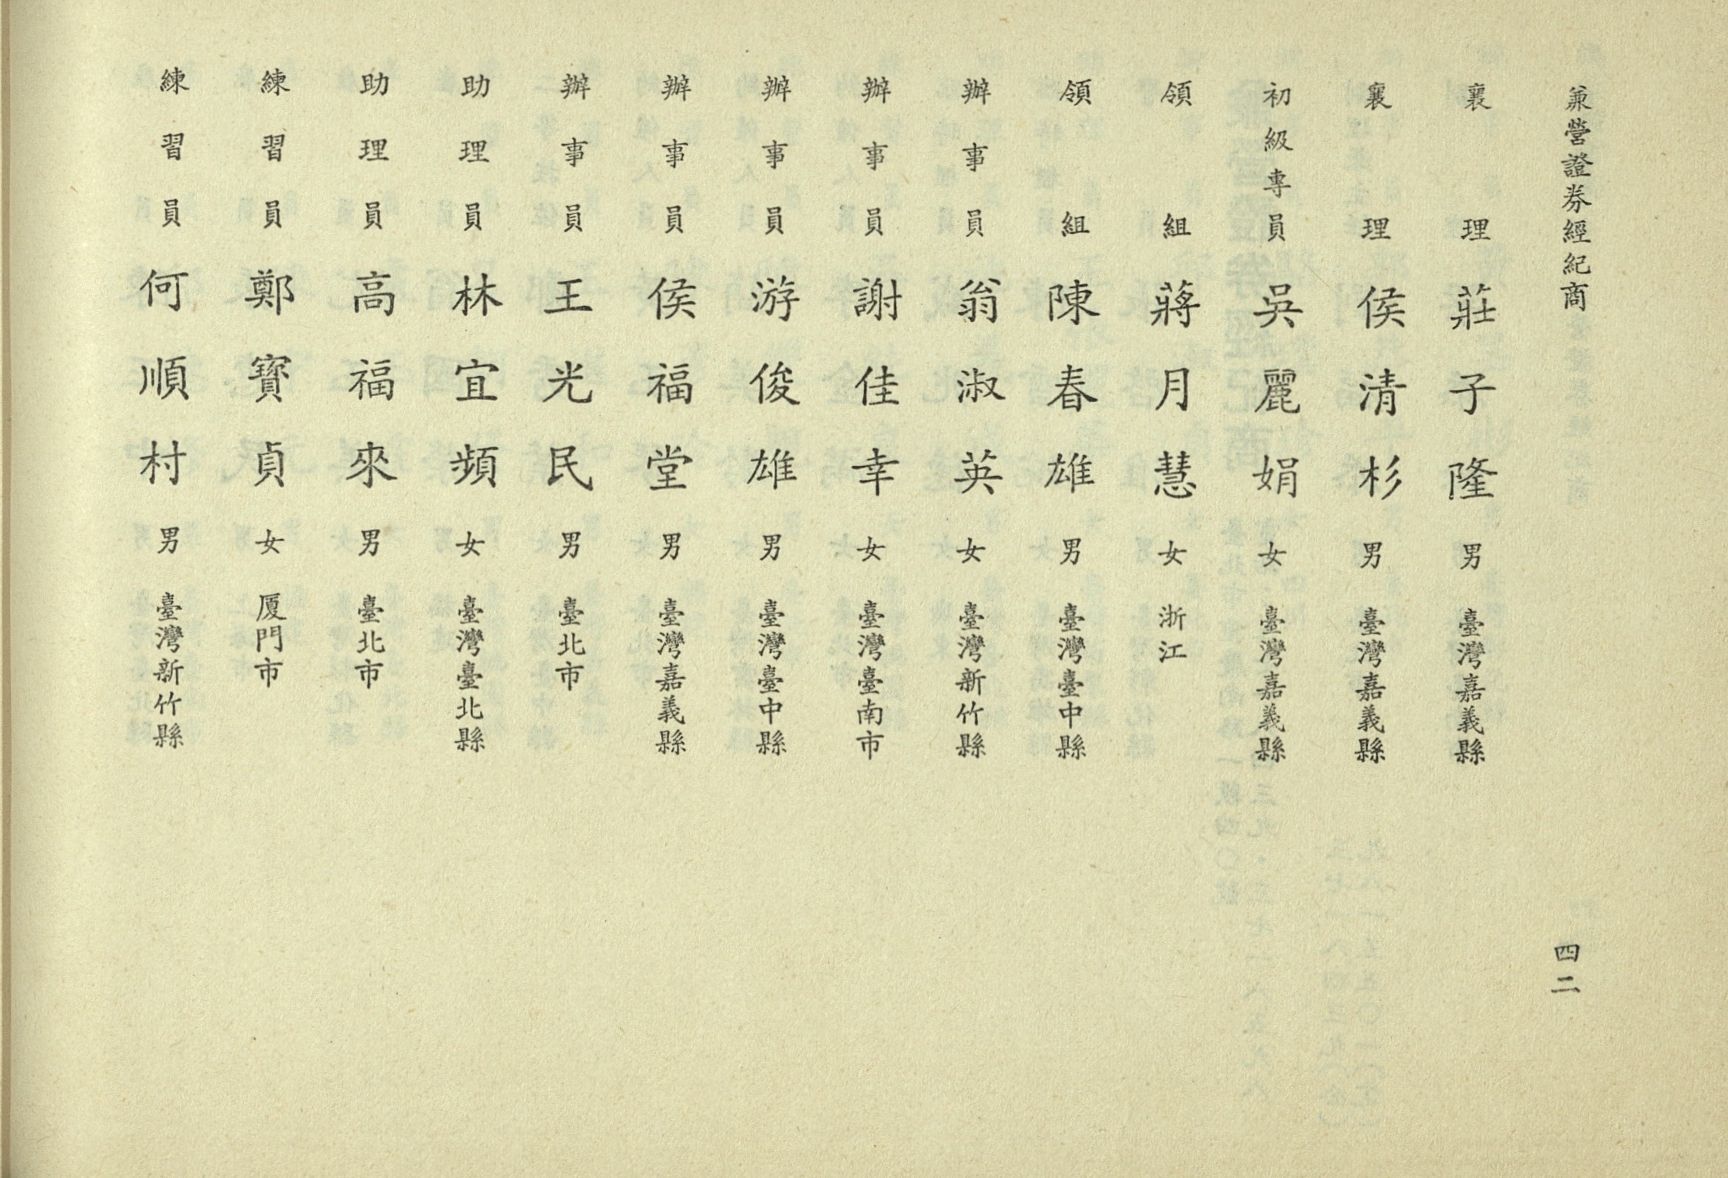 兼營證券經紀商
四二
襄理 莊子隆 男 臺灣嘉義縣
襄理 侯清杉 男 臺灣嘉義縣
初級專員 吳麗娟 女 臺灣嘉義縣
領組 蔣月慧 女 浙江
領組 陳春雄 男 臺灣臺中縣
辦事員 翁淑英 女 臺灣新竹縣
辦事員 謝佳幸 女 臺灣臺南市
辦事員 游俊雄 男 臺灣臺中縣
辦事員 侯福堂 男 臺灣嘉義縣
辦事員 王光民 男 臺北市
助理員 林宜頻 女 臺灣臺北縣
助理員 高福來 男 臺北市
練習員 鄭寶貞 女 厦門市
練習員 何順村 男 臺灣新竹縣